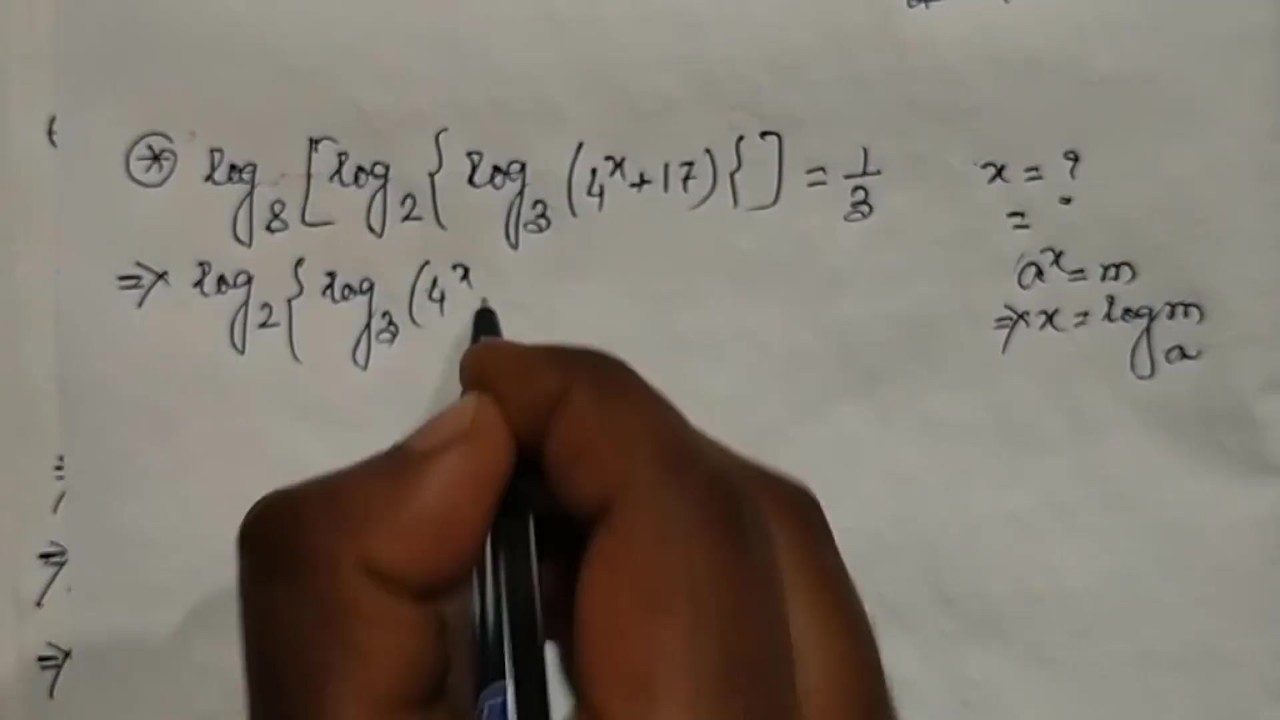 ⊛ log₈[log₂{log₃(4ˣ+17){] = 1/3
x = ?
=
⇒ log₂{log₃(4ˣ
aˣ = m
⇒ x = logₐm
=
⇒
⇒